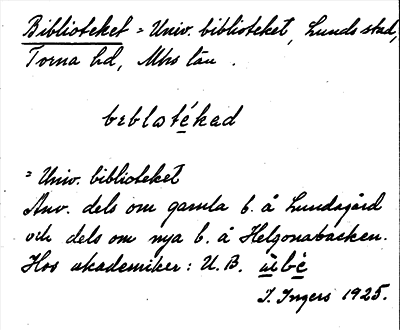 Biblioteket = Univ. biblioteket, Lunds stad,
Torna hd, Mhs län.
bɛblɷtékad
= Univ. biblioteket
Anv. dels om gamla b. å Lundagård
och dels om nya b. å Helgonabacken.
Hos akademiker: U.B. ùbé
I. Ingers 1925.